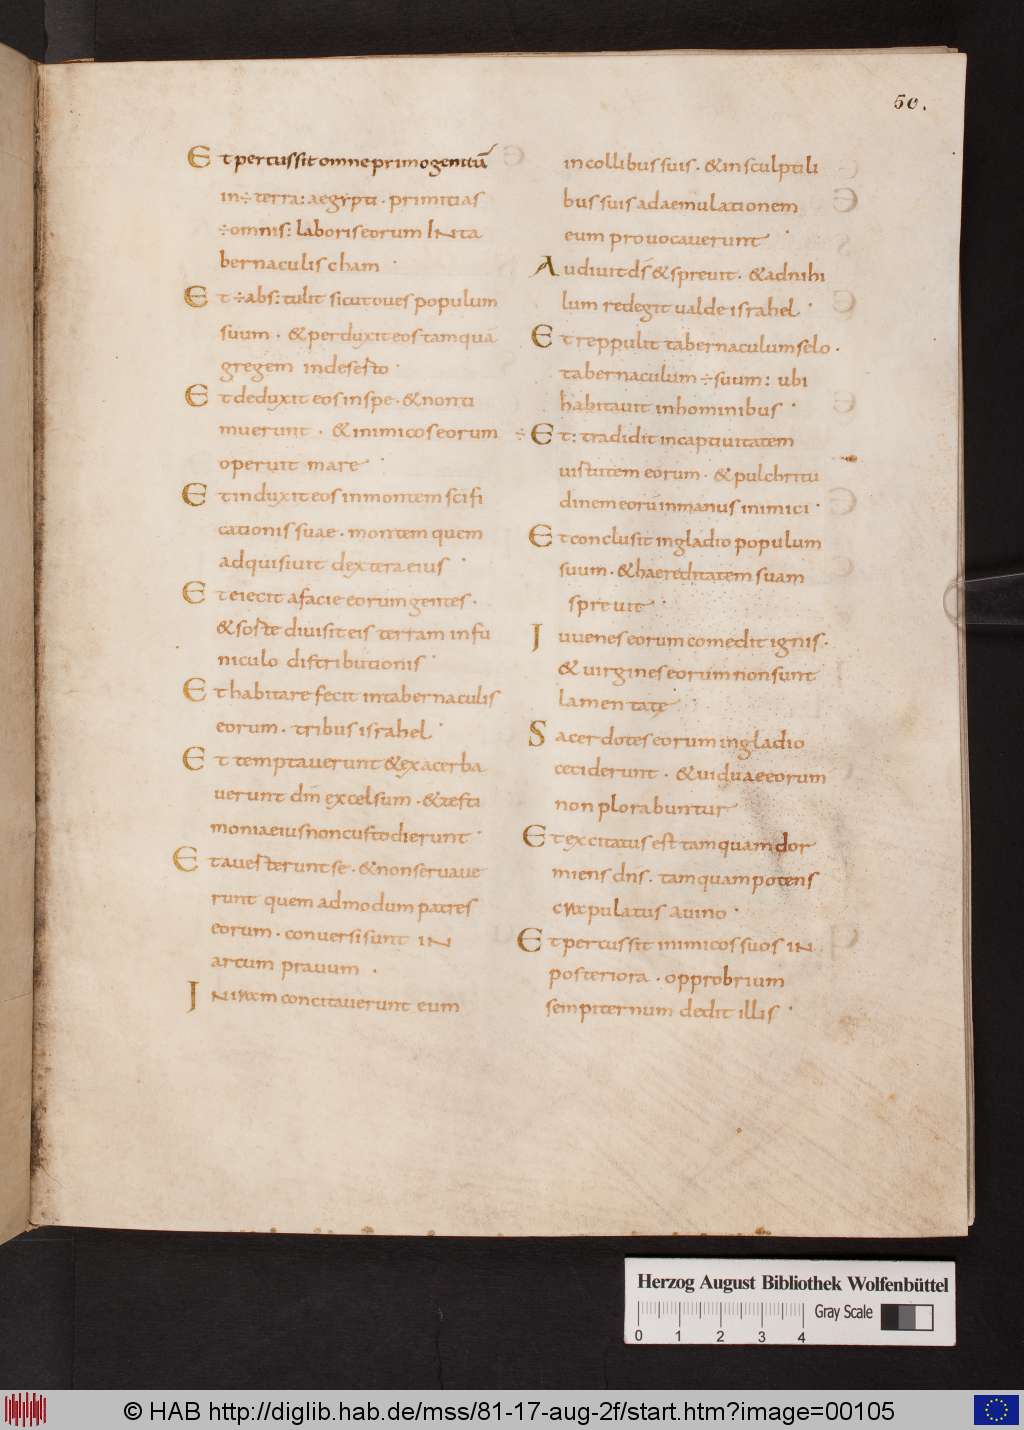 50.
Et percussit omne primogenitū
in ÷ terra: aegypti · primitias
÷ omnis: laboris eorum INta
bernaculis cham ·
Et ÷ abs: tulit sicut oues populum
suum · & perduxit eos tamquā
gregem in deserto ·
Et deduxit eos in spe · & non ti
muerunt · & inimicos eorum
operuit mare ·
Et induxit eos in montem scifi
cationis suae · montem quem
adquisiuit dextera eius ·
Et eiecit a facie eorum gentes ·
& sorte diuisit eis terram in fu
niculo distributionis ·
Et habitare fecit in tabernaculis
eorum · tribus israhel ·
Et temptauerunt & exacerba
uerunt dm̄ excelsum · & testi
monia eius non custodierunt ·
Et auerterunt se · & non seruaue
runt quem admodum patres
eorum · conuersi sunt IN
arcum prauum ·
IN iram concitauerunt eum
in collibus suis · & in sculptili
bus suis ad aemulationem
eum prouocauerunt ·
Audiuit ds̄ & spreuit · & ad nihi
lum redegit ualde israhel ·
Et reppulit tabernaculum selo ·
tabernaculum ÷ suum: ubi
habitauit in hominibus ·
÷ Et: tradidit in captiuitatem
uirtutem eorum · & pulchritu
dinem eorū in manus inimici ·
Et conclusit in gladio populum
suum · & haereditatem suam
spreuit ·
Iuuenes eorum comedit ignis ·
& uirgines eorum non sunt
lamentate
Sacerdotes eorum in gladio
ceciderunt · & uiduae eorum
non plorabuntur
Et excitatus est tamquam dor
miens dns · tamquam potens
crapulatus a uino ·
Et percussit inimicos suos IN
posteriora · opprobrium
sempiternum dedit illis ·
Herzog August Bibliothek Wolfenbüttel
Gray Scale
0 1 2 3 4
© HAB http://diglib.hab.de/mss/81-17-aug-2f/start.htm?image=00105